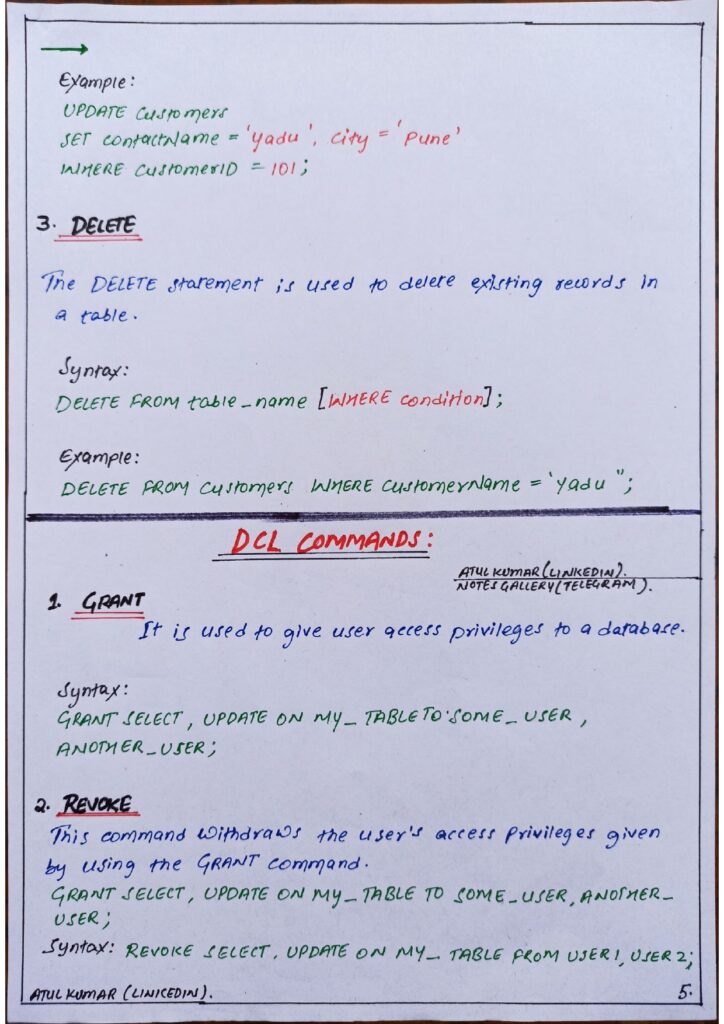 Example:
UPDATE Customers
SET contactName = 'Yadu', City = 'Pune'
WHERE CustomerID = 101;
3. DELETE
The DELETE statement is used to delete existing records in
a table.
Syntax:
DELETE FROM table_name [WHERE condition];
Example:
DELETE FROM Customers WHERE CustomerName = 'Yadu";
DCL COMMANDS:
ATUL KUMAR (LINKEDIN).
NOTES GALLERY (TELEGRAM).
1. GRANT
It is used to give user access privileges to a database.
Syntax:
GRANT SELECT, UPDATE ON MY_TABLE TO SOME_USER,
ANOTHER_USER;
2. REVOKE
This command withdraws the user's access privileges given
by using the GRANT command.
GRANT SELECT, UPDATE ON MY_TABLE TO SOME_USER, ANOTHER_
USER;
Syntax: REVOKE SELECT, UPDATE ON MY_TABLE FROM USER1, USER2;
ATUL KUMAR (LINKEDIN).
5.